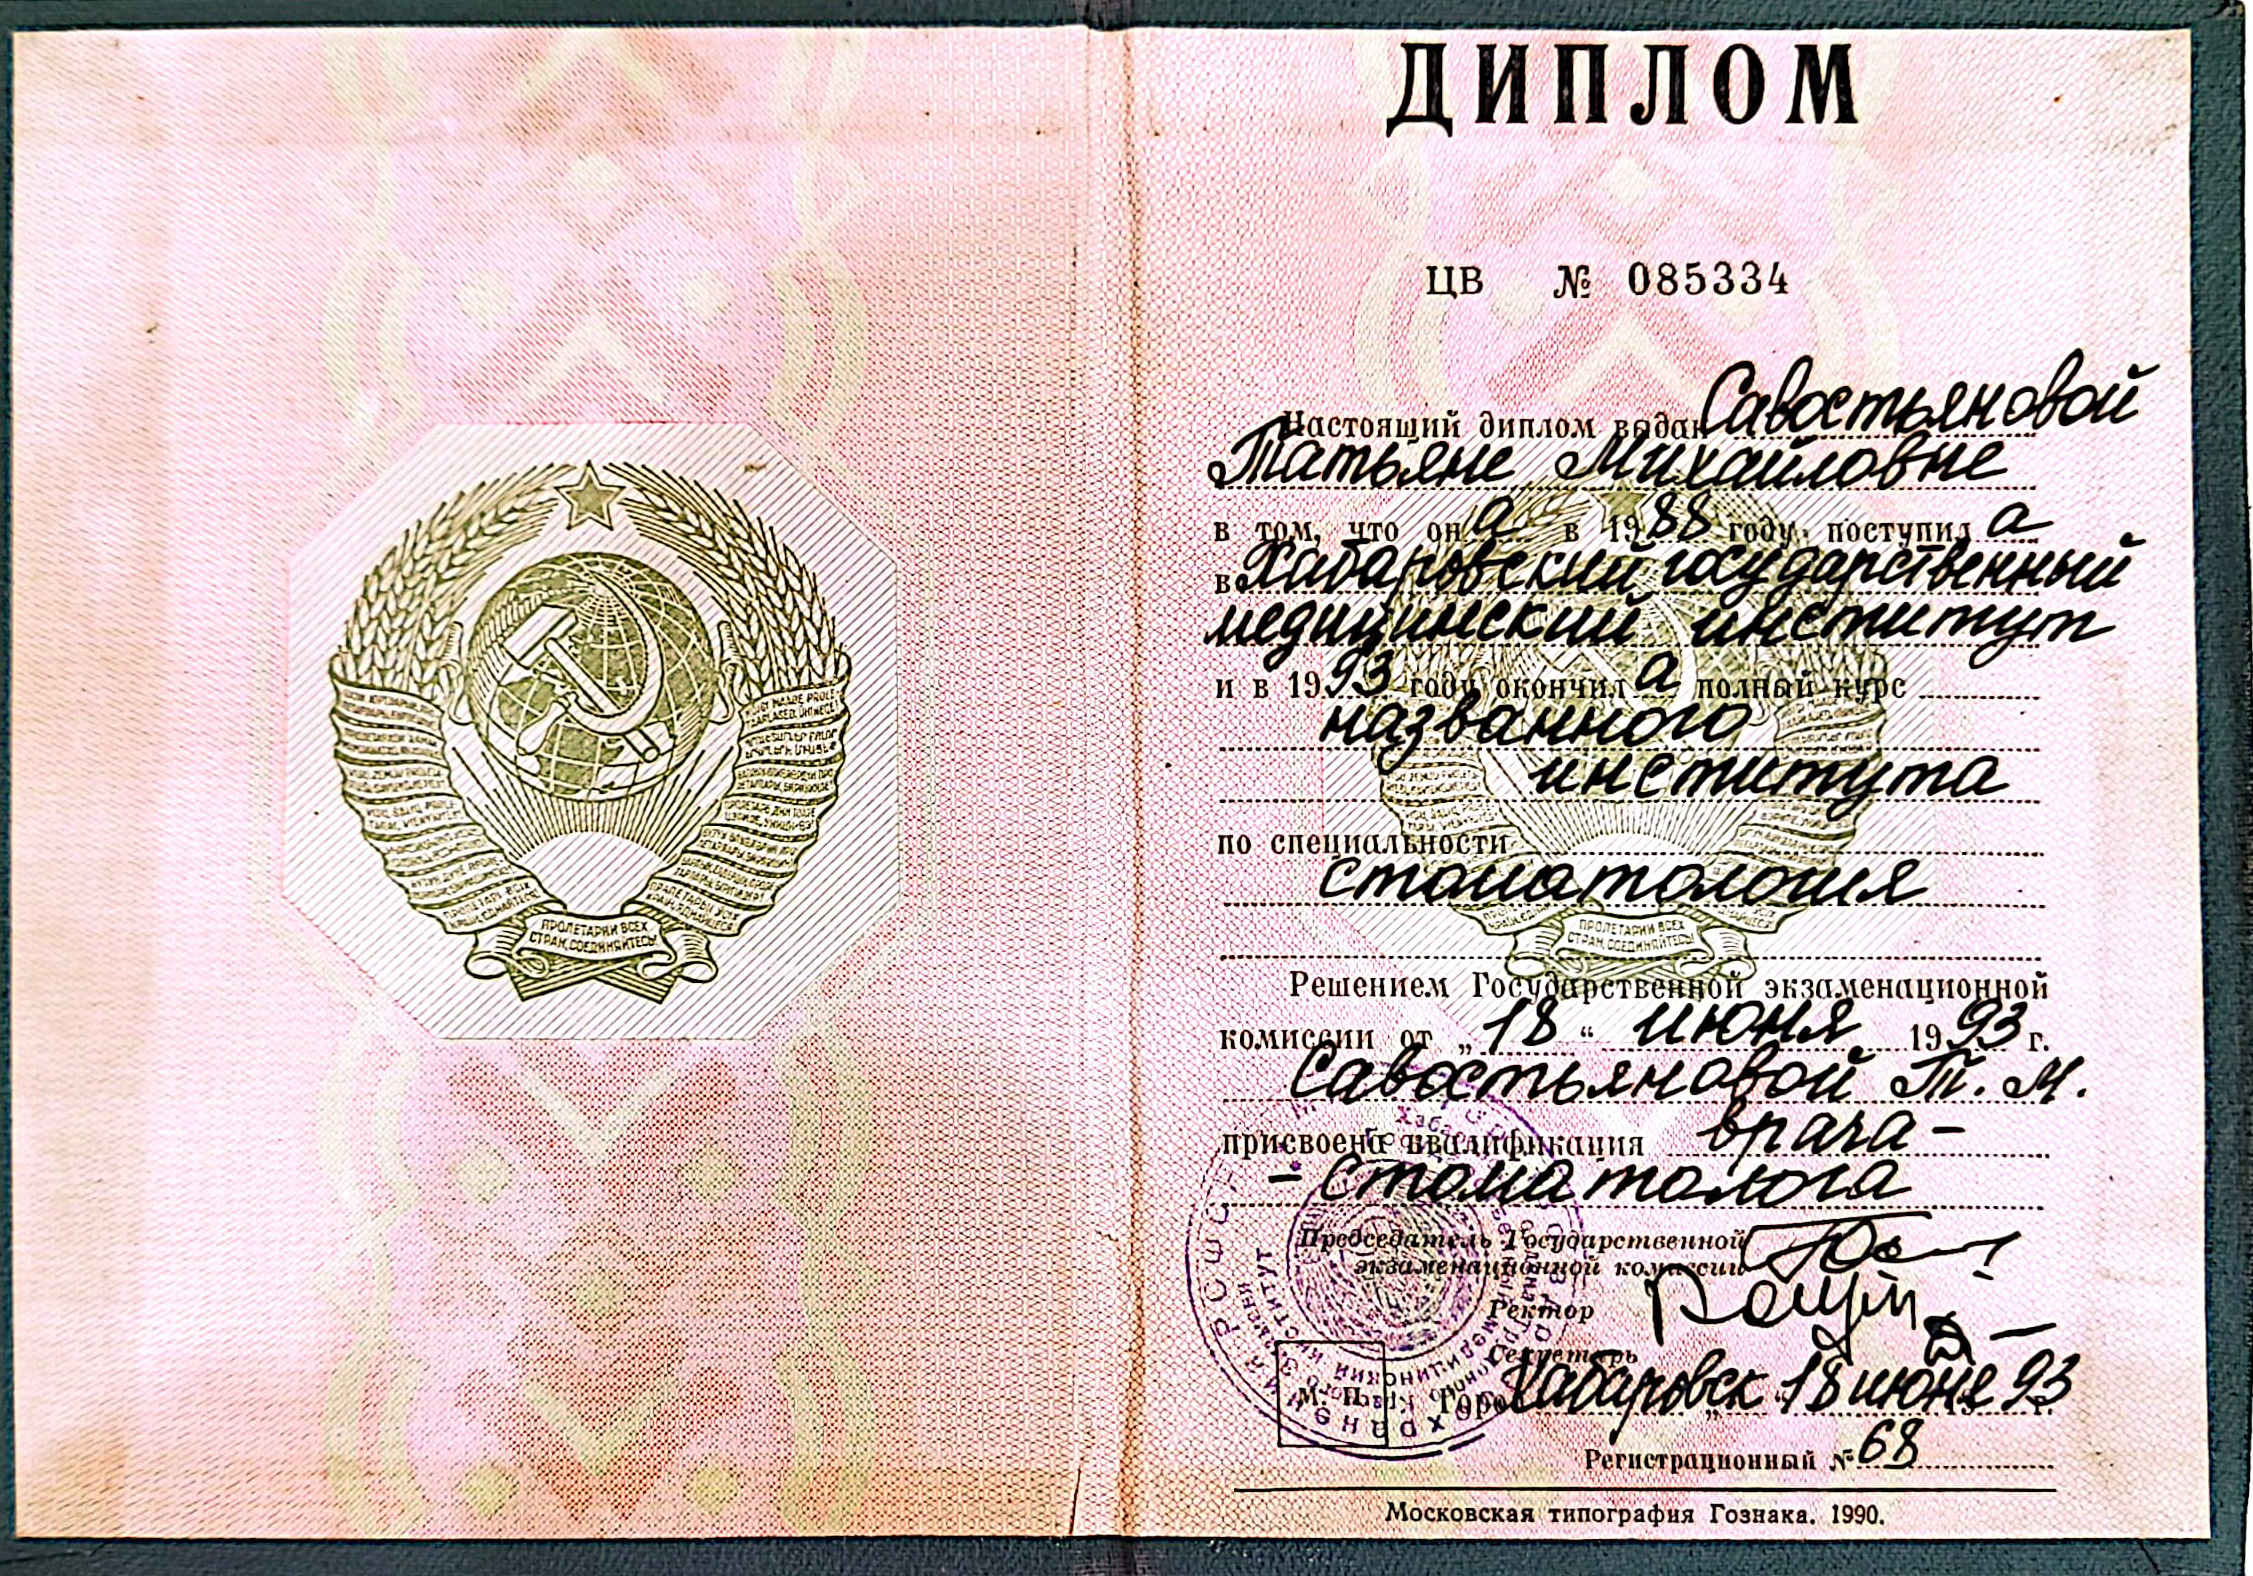 ПРОЛЕТАРИИ ВСЕХ
СТРАН, СОЕДИНЯЙТЕСЬ!
ДИПЛОМ
ЦВ № 085334
Настоящий диплом выдан Савостьяновой
Татьяне Михайловне
в том, что она в 1988 году поступила
в Хабаровский государственный
медицинский институт
и в 1993 году окончила полный курс
названного
института
по специальности
стоматология
ПРОЛЕТАРИИ ВСЕХ
СТРАН, СОЕДИНЯЙТЕСЬ!
Решением Государственной экзаменационной
комиссии от „18“ июня 1993 г.
Савостьяновой Т. М.
присвоена квалификация врача-
-стоматолога
Председатель Государственной
экзаменационной комиссии
Ректор
Секретарь
М. П. Город Хабаровск „18“ июне 1993 г.
Регистрационный № 68
Московская типография Гознака. 1990.